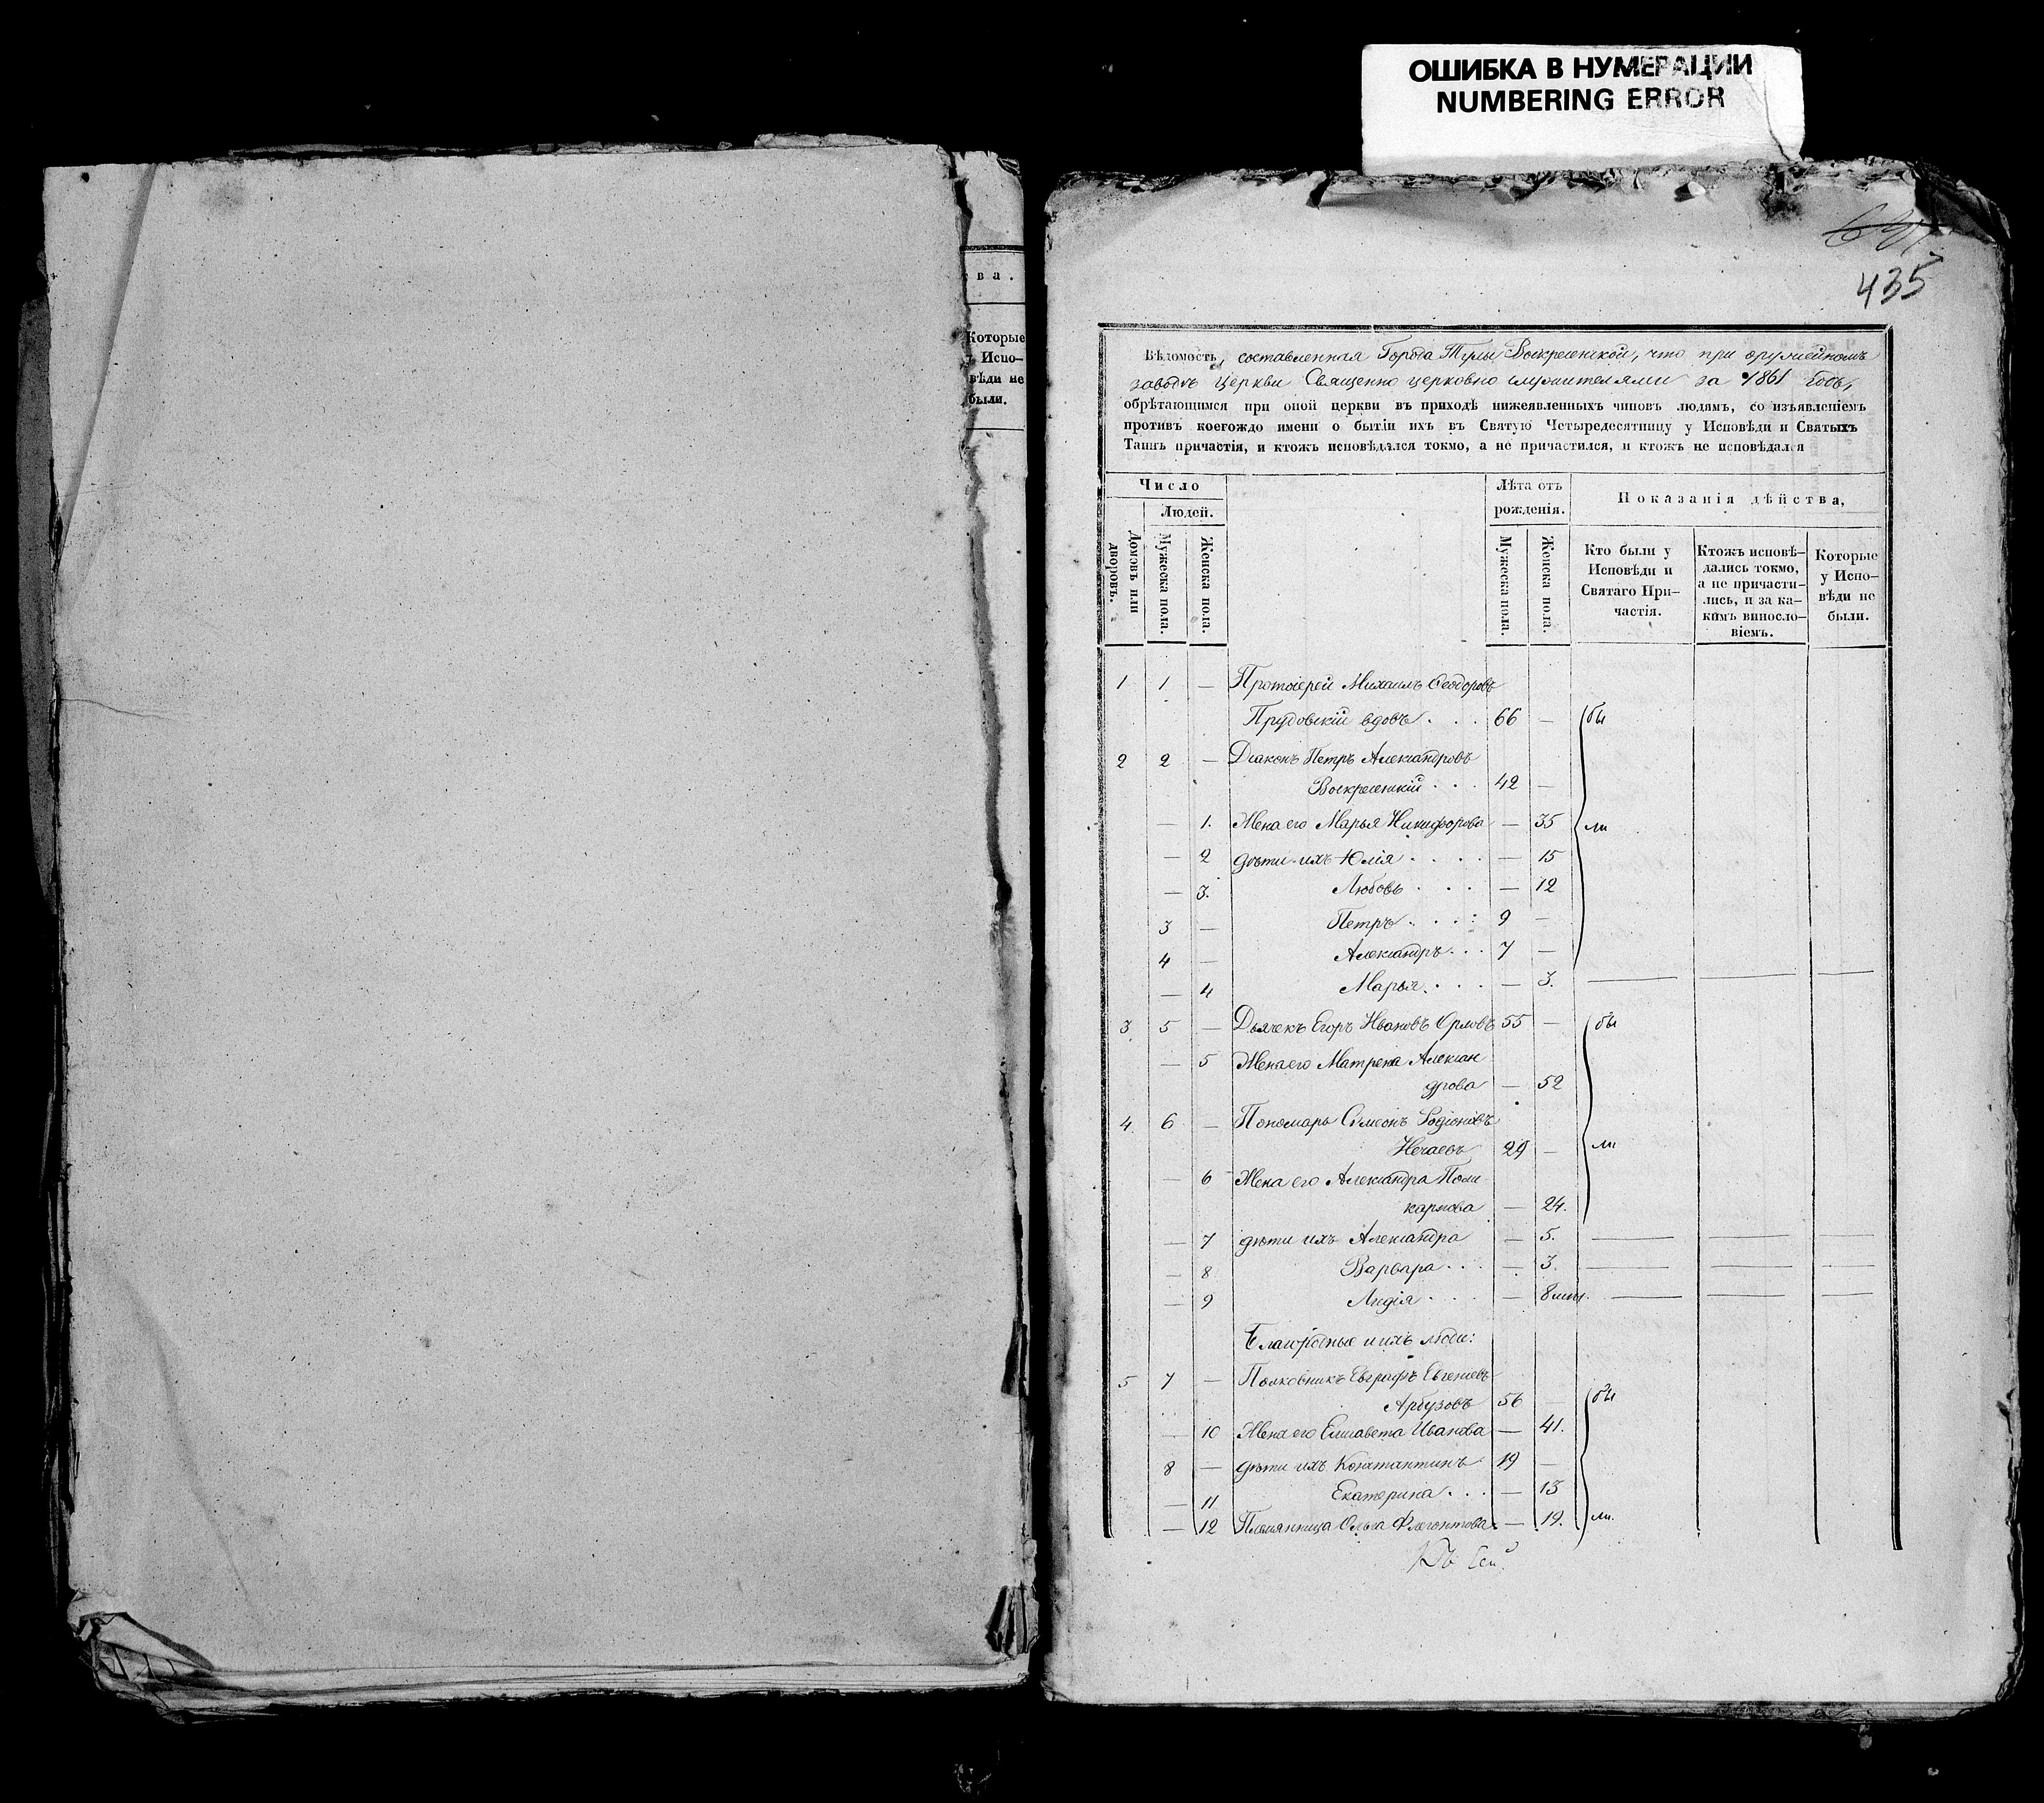 ОШИБКА В НУМЕРАЦИИ
NUMBERING ERROR
435
ва.
Которые
у Испо-
вѣди не
были.
Вѣдомость, составленная Города Тулы Воскресенской, что при оружейномъ
заводѣ церкви Священно церковно служителями за 1861 годъ,
обрѣтающимся при оной церкви въ приходѣ нижеявленныхъ чиновъ людямъ, со изъявленіемъ
противъ коегождо имени о бытіи ихъ въ Святую Четыредесятницу у Исповѣди и Святыхъ
Таинъ причастія, и ктожъ исповѣдался токмо, а не причастился, и ктожъ не исповѣдался
Число
Людей.
Домовъ или дворовъ.
Мужеска пола.
Женска пола.
Лѣта отъ
рожденія.
Мужеска пола.
Женска пола.
Показанія дѣйства,
Кто были у
Исповѣди и
Святаго При-
частія.
Ктожъ исповѣ-
дались токмо,
а не причасти-
лись, и за ка-
кимъ виносло-
віемъ.
Которые
у Испо-
вѣди не
были.
1 1 — Протоіерей Михаилъ Ѳеодоровъ
Прудовскій вдовъ . . . 66 — бы
2 2 — Діаконъ Петръ Александровъ
Воскресенскій . . . 42 —
— 1. Жена его Марья Никифорова — 35 ли
— 2 дѣти ихъ Юлія . . . . — 15
— 3. Любовь . . . — 12
3 — Петръ . . . . 9 —
4 — Александръ . . . 7 —
— 4 Марья . . . . — 3.
3 5 — Дьячекъ Егоръ Ивановъ Орловъ 55 — бы
— 5 Жена его Матрена Алексан
дрова — 52
4 6 — Пономарь Симеонъ Родіоновъ
Нечаевъ 29 — ли
— 6 Жена его Александра Поли
карпова — 24.
— 7 дѣти ихъ Александра — 5.
— 8 Варвара . . . — 3.
— 9 Лидія . . . . — 8 мѣс.
Благородные и ихъ люди:
5 7 — Полковникъ Евграфъ Евгеніевъ
Арбузовъ 56 — бы
— 10 Жена его Елисавета Иванова — 41.
8 — дѣти ихъ Константинъ 19 —
— 11 Екатерина . . . — 13
— 12 Племянница Ольга Флегонтова — 19. ли.